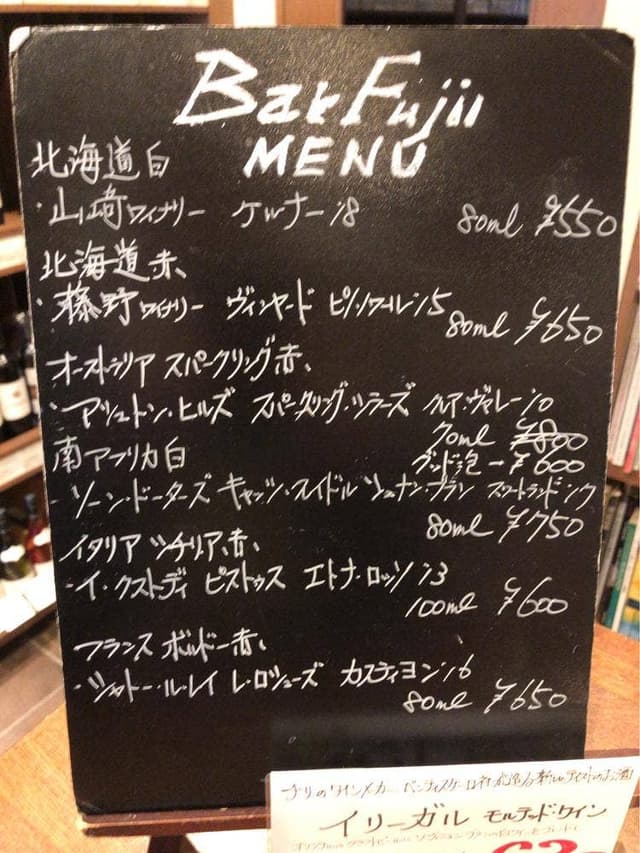 Bar Fujii
MENU
北海道白
・山崎ワイナリー ケルナー'18 80ml ¥550
北海道赤、
・藤野ワイナリー ヴィンヤード ピノ・ノワール'15 80ml ¥650
オーストラリア スパークリング赤、
・アシュトン・ヒルズ スパークリング・シラーズ クレア・ヴァレー'10
70ml ¥800
南アフリカ白 グッド泡→¥600
・ソーン・ドーターズ キャッツ・スイドル シュナン・ブラン スワートランド'17
80ml ¥750
イタリア シチリア、赤、
・イ・クストディ ピストゥス エトナ・ロッソ'13
100ml ¥600
フランス ボルドー赤、
・シャトー・ル・レイ レ・ロシューズ カスティヨン'16
80ml ¥650
チリのワインメーカー
イリーガル モルテッド・ワイン